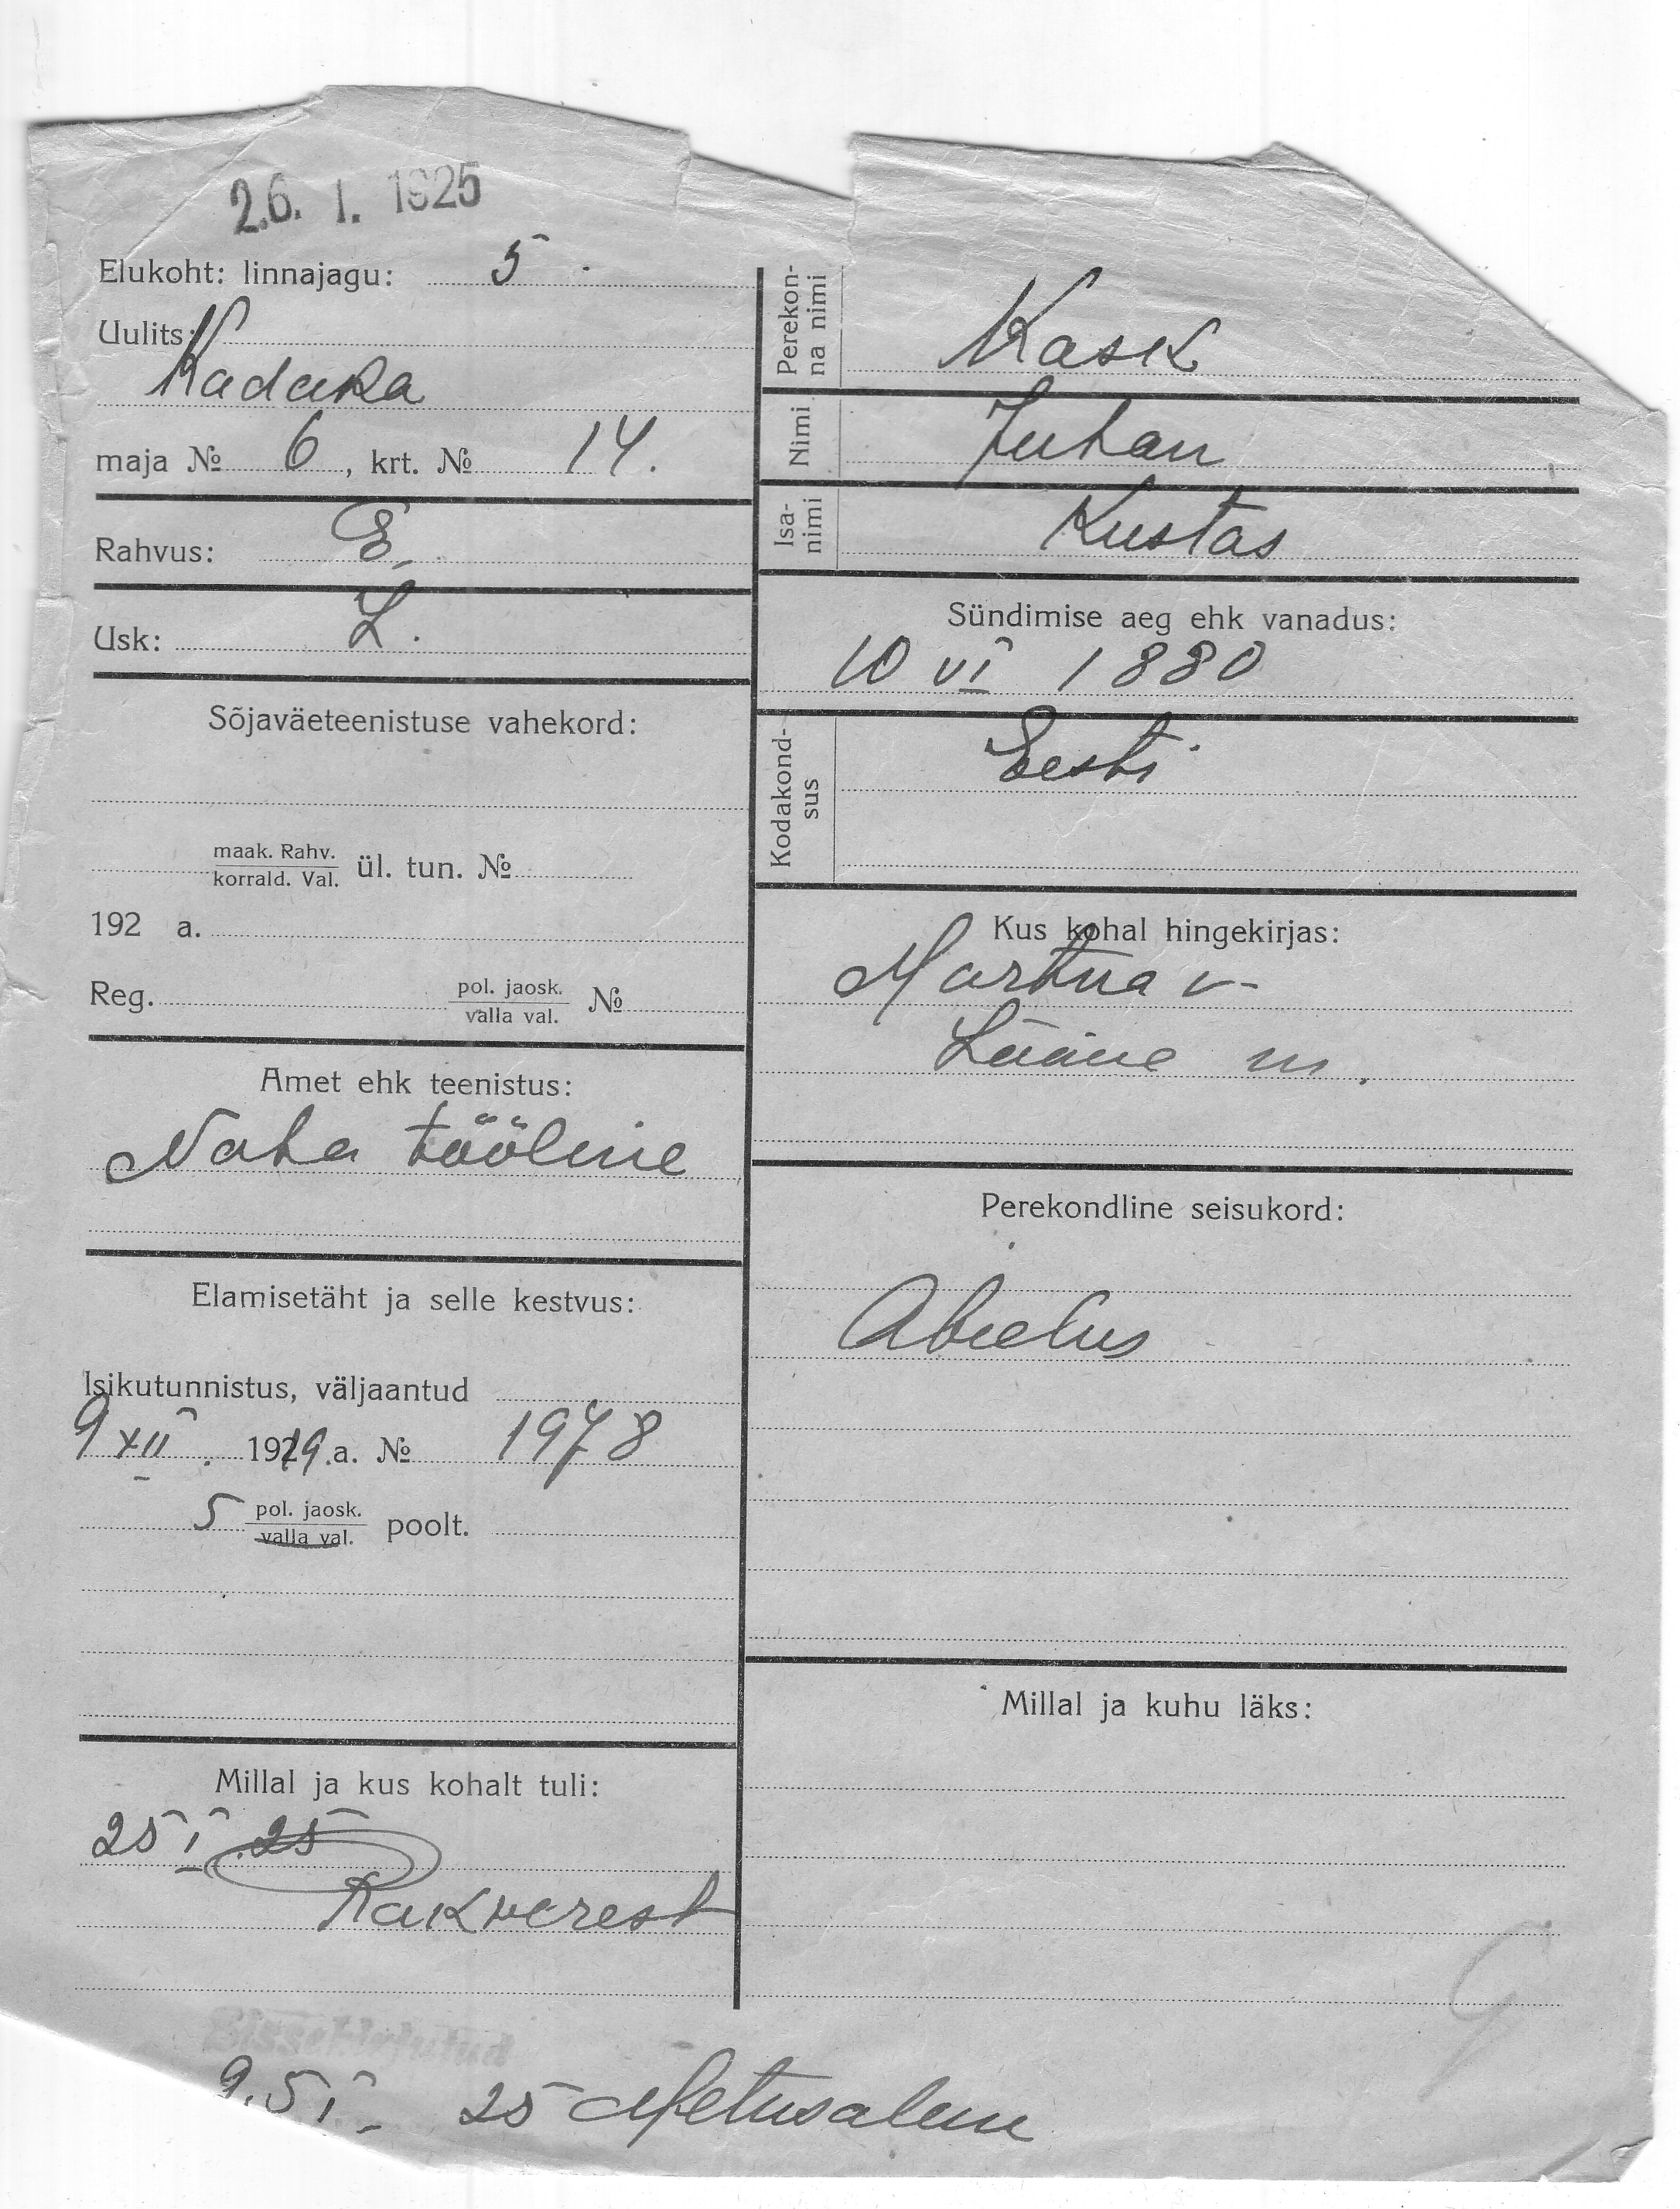 26. 1. 1925
Elukoht: linnajagu: 5
Uulits:
Kadaka
maja № 6, krt. № 14.
Rahvus: E.
Usk: L.
Sõjaväeteenistuse vahekord:
maak. Rahv.
korrald. Val. ül. tun. №
192 a.
Reg. pol. jaosk.
valla val. №
Amet ehk teenistus:
Naha tööline
Elamisetäht ja selle kestvus:
Isikutunnistus, väljaantud
9 XII. 1919.a. № 1978
5 pol. jaosk.
valla val. poolt.
Millal ja kus kohalt tuli:
25 I 25
Rakverest
Perekon-
na nimi Kask
Nimi Juhan
Isa-
nimi Kustas
Sündimise aeg ehk vanadus:
10 VI 1880
Kodakond-
sus Eesti
Kus kohal hingekirjas:
Martna v-
Lääne m.
Perekondline seisukord:
Abielus
Millal ja kuhu läks:
Sissekirjutud
25 Metusalem